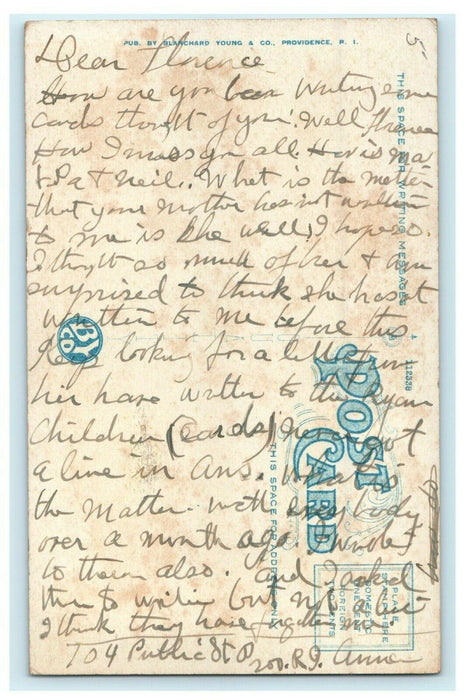 PUB. BY BLANCHARD YOUNG & CO., PROVIDENCE, R. I.
5
Dear Florence
How are you been writing some
cards thought of you. Well Florence
How I miss you all. How is ma
& Pa & Neil.. What is the matter
that your mother has not written
to me is she well, I hope so.
I thought so much of her & am
surprised to think she has not
written to me before this
Keep looking for a letter from
her have written to the Ryan
Children (cards) never got
a line in Ans. What is
the matter with everybody
over a month ago I wrote
to them also. and I asked
them to write but not a line
I think they have forgotten me.
704 Public St P
R.I. Anna
THIS SPACE FOR WRITING MESSAGES
BY
& CO
112338
POST
CARD
THIS SPACE FOR ADDRESS ONLY
PLACE
STAMP HERE
DOMESTIC
ONE CENT
FOREIGN
TWO CENTS